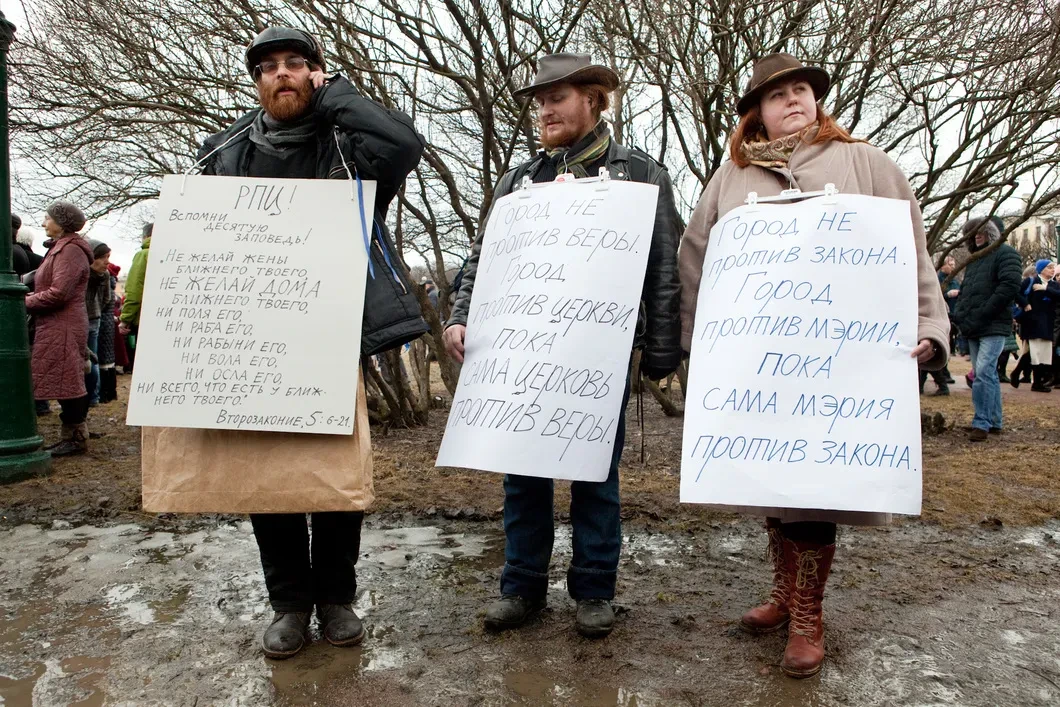 РПЦ!
Вспомни
десятую
заповедь!
"Не желай жены
ближнего твоего,
не желай дома
ближнего твоего,
ни поля его,
ни раба его,
ни рабыни его,
ни вола его,
ни осла его,
ни всего, что есть у ближ-
него твоего."
Второзаконие, 5:6-21
Город не
против веры.
Город
против церкви,
пока
сама церковь
против веры.
Город не
против закона.
Город
против мэрии,
пока
сама мэрия
против закона.